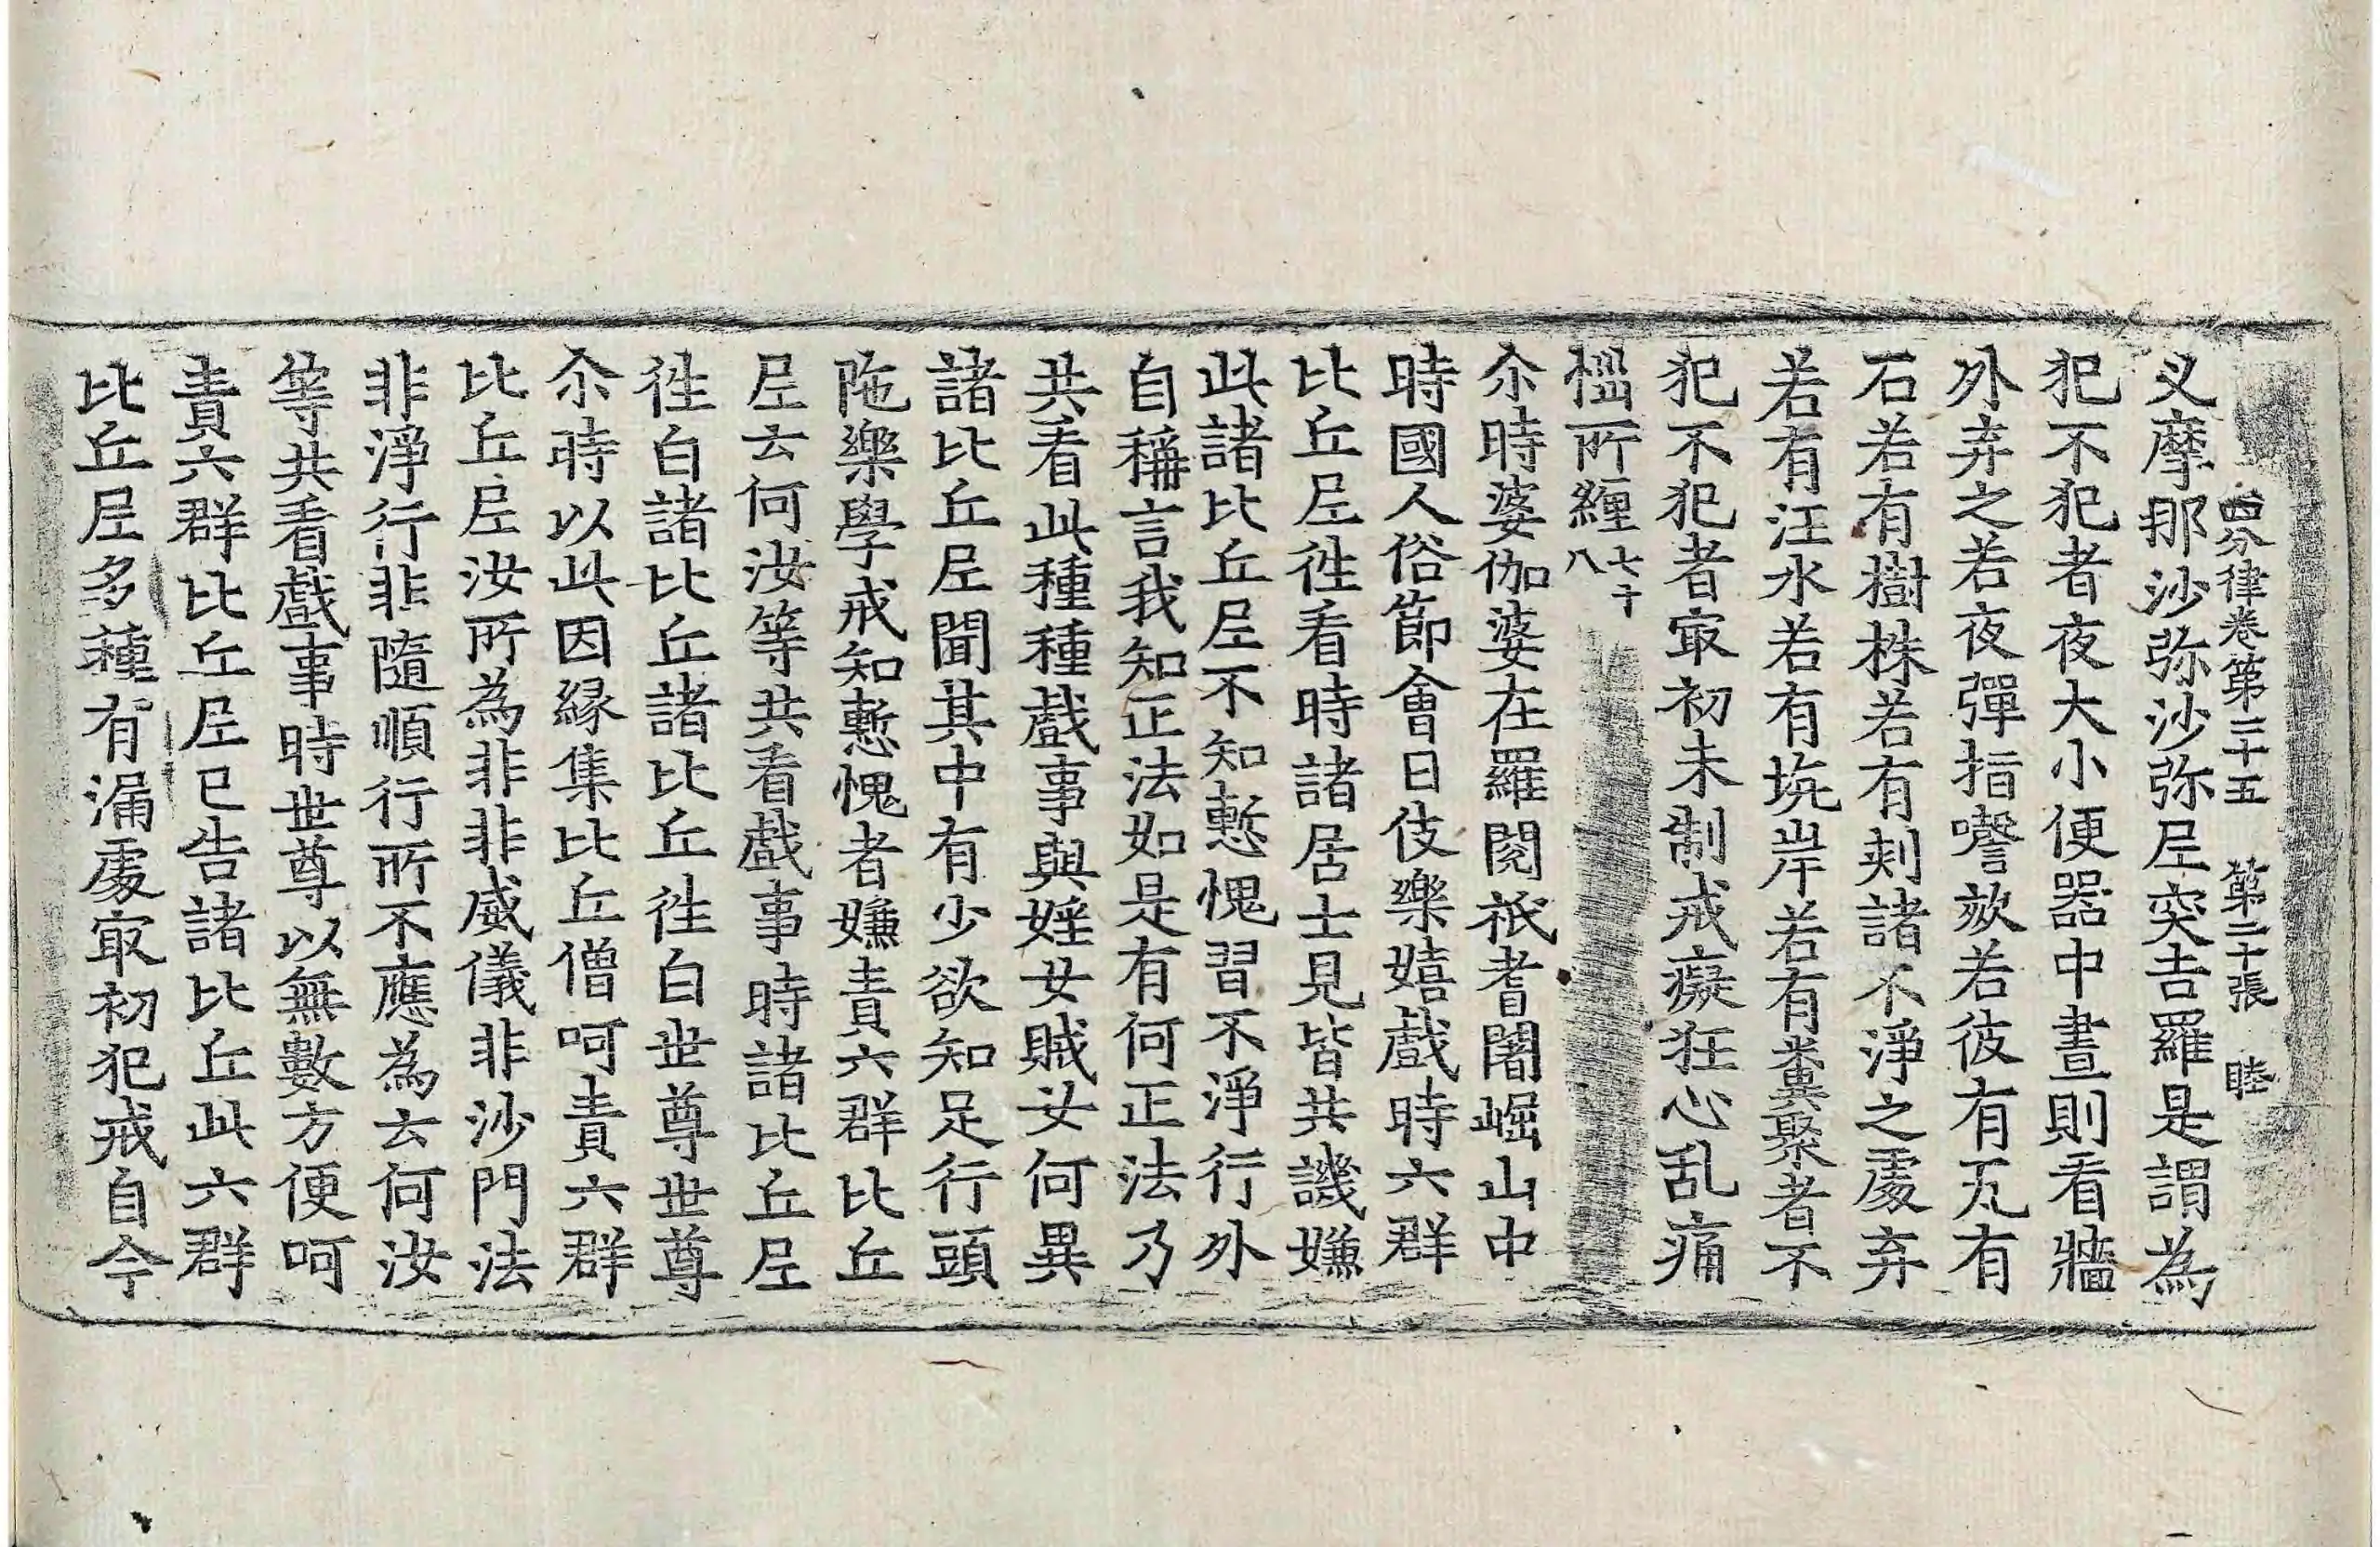 四分律卷第二十五　第二十張　睦
叉摩那沙弥沙弥尼突吉羅是謂為
犯不犯者夜大小便器中晝則看牆
外弃之若夜彈指謦欬若彼有瓦有
石若有樹株若有刺諸不淨之處弃
若有汪水若有坑岸若有糞聚者不
犯不犯者㝡初未制戒癡狂心乱痛
惱所纏七十八
尒時婆伽婆在羅閱祇耆闍崛山中
時國人俗節會日伎樂嬉戲時六群
比丘尼徃看時諸居士見皆共譏嫌
此諸比丘尼不知慙愧習不淨行外
自稱言我知正法如是有何正法乃
共看此種種戲事與婬女賊女何異
諸比丘尼聞其中有少欲知足行頭
陁樂學戒知慙愧者嫌責六群比丘
尼云何汝等共看戲事時諸比丘尼
徃白諸比丘諸比丘徃白世尊世尊
尒時以此因緣集比丘僧呵責六群
比丘尼汝所為非非威儀非沙門法
非淨行非隨順行所不應為云何汝
等共看戲事時世尊以無數方便呵
責六群比丘尼已告諸比丘此六群
比丘尼多種有漏處㝡初犯戒自今